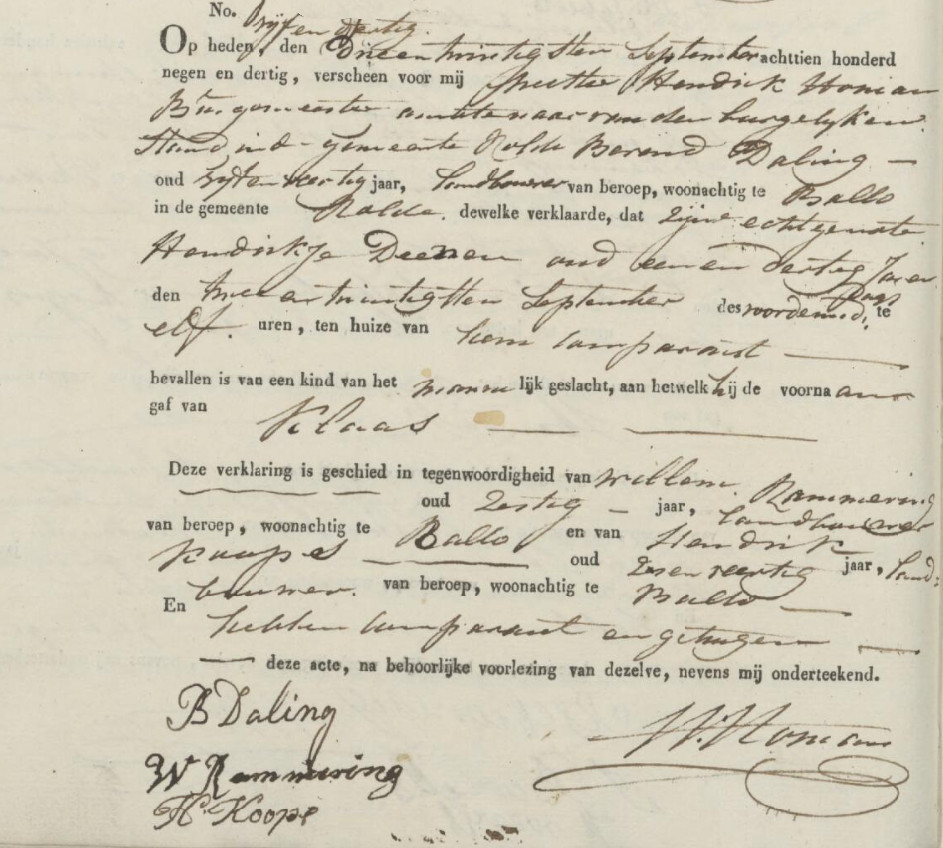 No. Vyf en dertig.
Op heden, den Drieentwintigsten September achttien honderd
negen en dertig, verscheen voor mij Hendrik Homan
Burgemeester amtenaar van den burgelyken
Stand in d- gemeente Rolde Berend Daling —
oud vyf en veertig jaar, landbouwer van beroep, woonachtig te Ballo
in de gemeente Rolde. dewelke verklaarde, dat zijne echtgenote
Hendrikje Deenen oud een en dertig Jaren
den twee en twintigsten September des voordemid, te
dags
elf. uren, ten huize van hem comparant —
bevallen is van een kind van het mannelijk geslacht, aan hetwelk hij de voornaam
gaf van Klaas — —
Deze verklaring is geschied in tegenwoordigheid van willem Rammering
oud zestig — jaar, landbouwer
van beroep, woonachtig te Ballo en van Hendrik
Koops — oud zes en veertig jaar, land:
bouwer. van beroep, woonachtig te Ballo —
En hebben comparant en getuigen —
— deze acte, na behoorlijke voorlezing van dezelve, nevens mij onderteekend.
B Daling
H. Homan
W Rammering
H. Koops